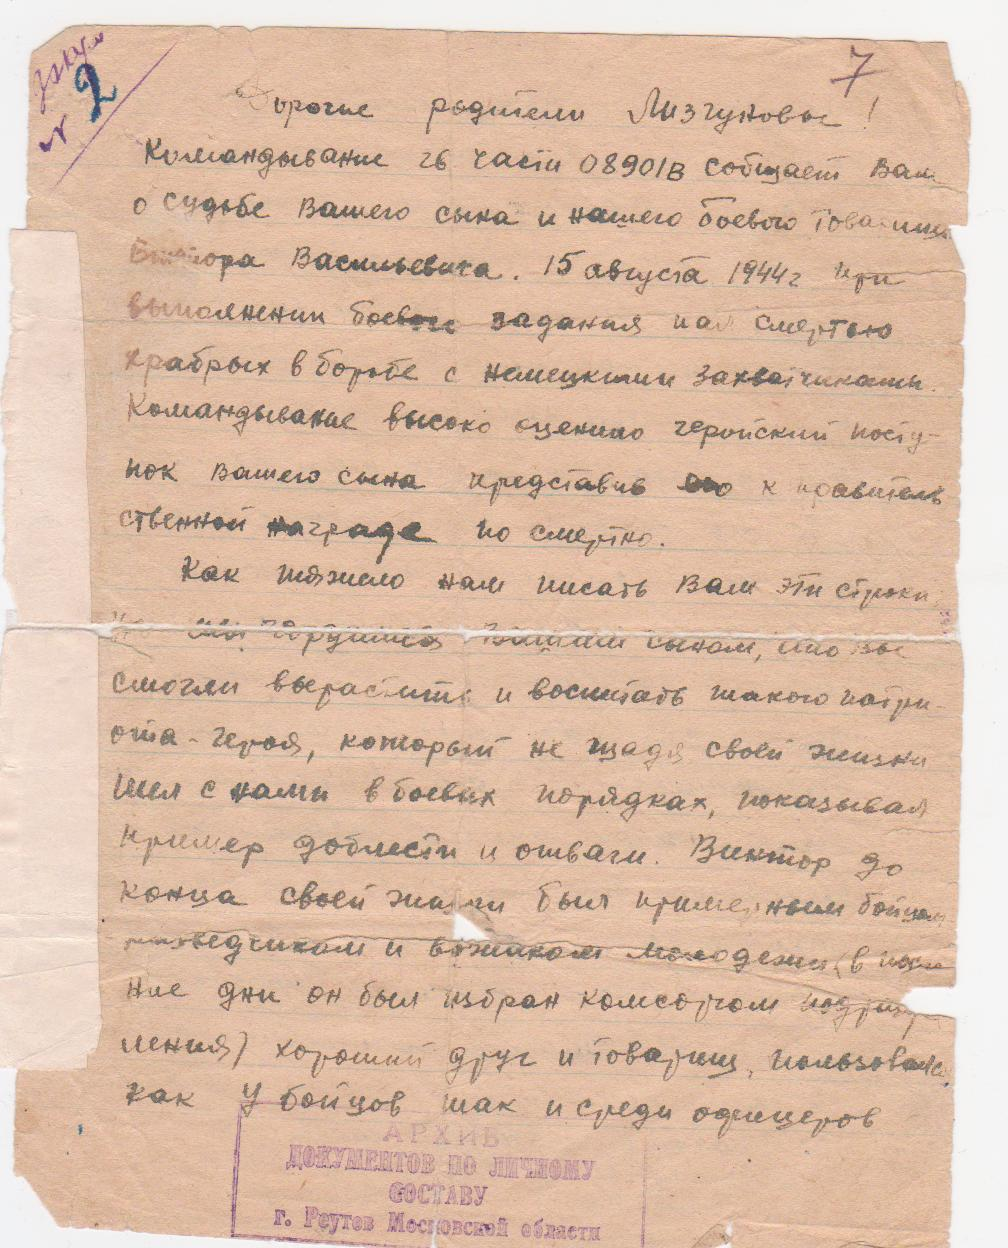 7
№ 2
Дорогие родители Лизгуновы!
Командывание 26 части 08901В собщает Вам
о судьбе Вашего сына и нашего боевого товарища
Виктора Васильевича. 15 августа 1944г при
выполнении боевого задания пал смертью
храбрых в борьбе с немецкими захватчиками.
Командывание высоко оценило геройский посту-
пок Вашего сына представив его к правитель
ственной награде по смертно.
Как тяжело нам писать Вам эти строки
но мы гордимся Вашим сыном, что Вы
смогли вырастить и воспитать такого патри-
ота-героя, который не щадя своей жизни
шел с нами в боевых порядках, показывал
пример доблести и отваги. Виктор до
конца своей жизни был примерным бойцом
разведчиком и вожаком молодежи (в
ние дни он был избран комсоргом подразде
ления) хороший друг и товарищ, пользовался
как у бойцов так и среди офицеров
АРХИВ
ДОКУМЕНТОВ ПО ЛИЧНОМУ
СОСТАВУ
г. Реутов Московской области